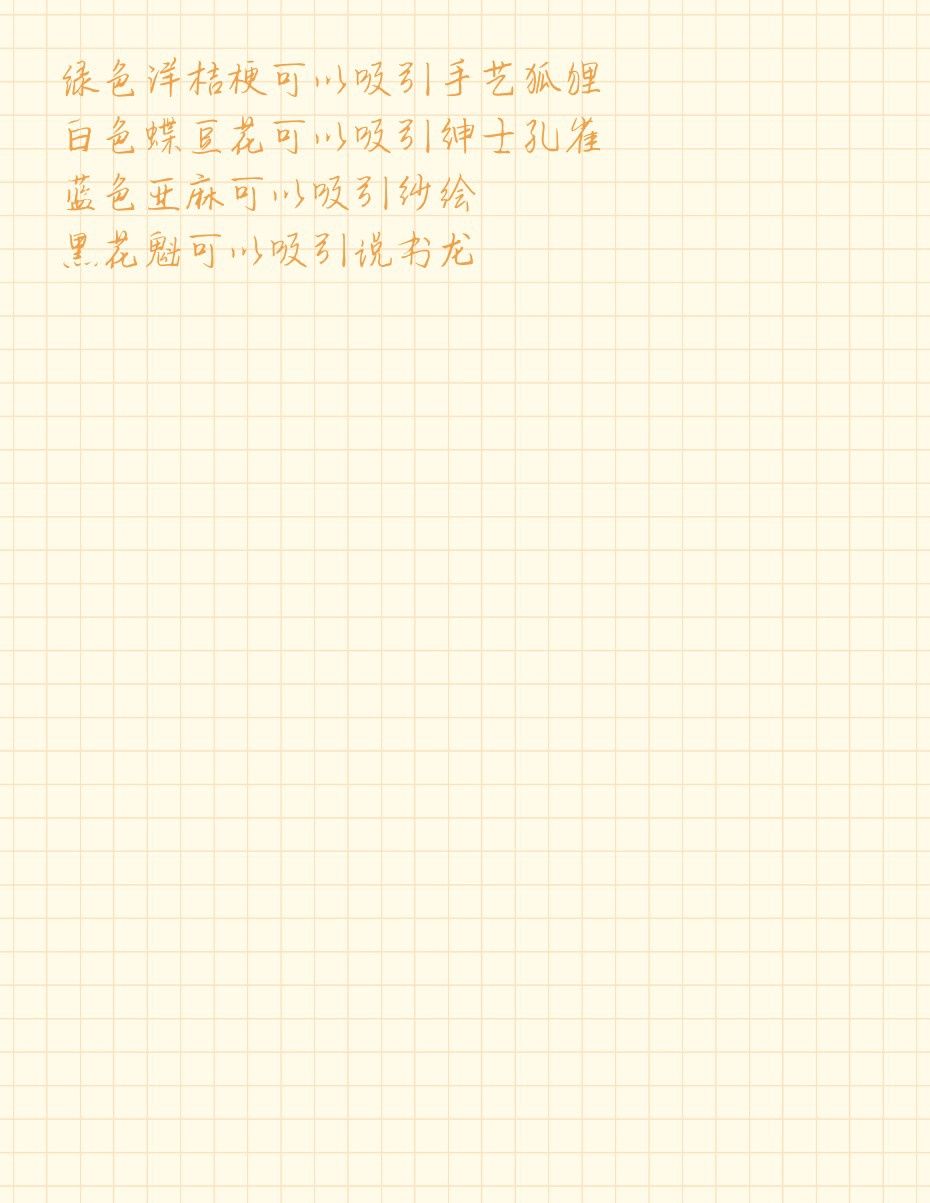 绿色洋桔梗可以吸引手艺狐狸
白色蝶豆花可以吸引绅士孔雀
蓝色亚麻可以吸引纱绘
黑花魁可以吸引说书龙